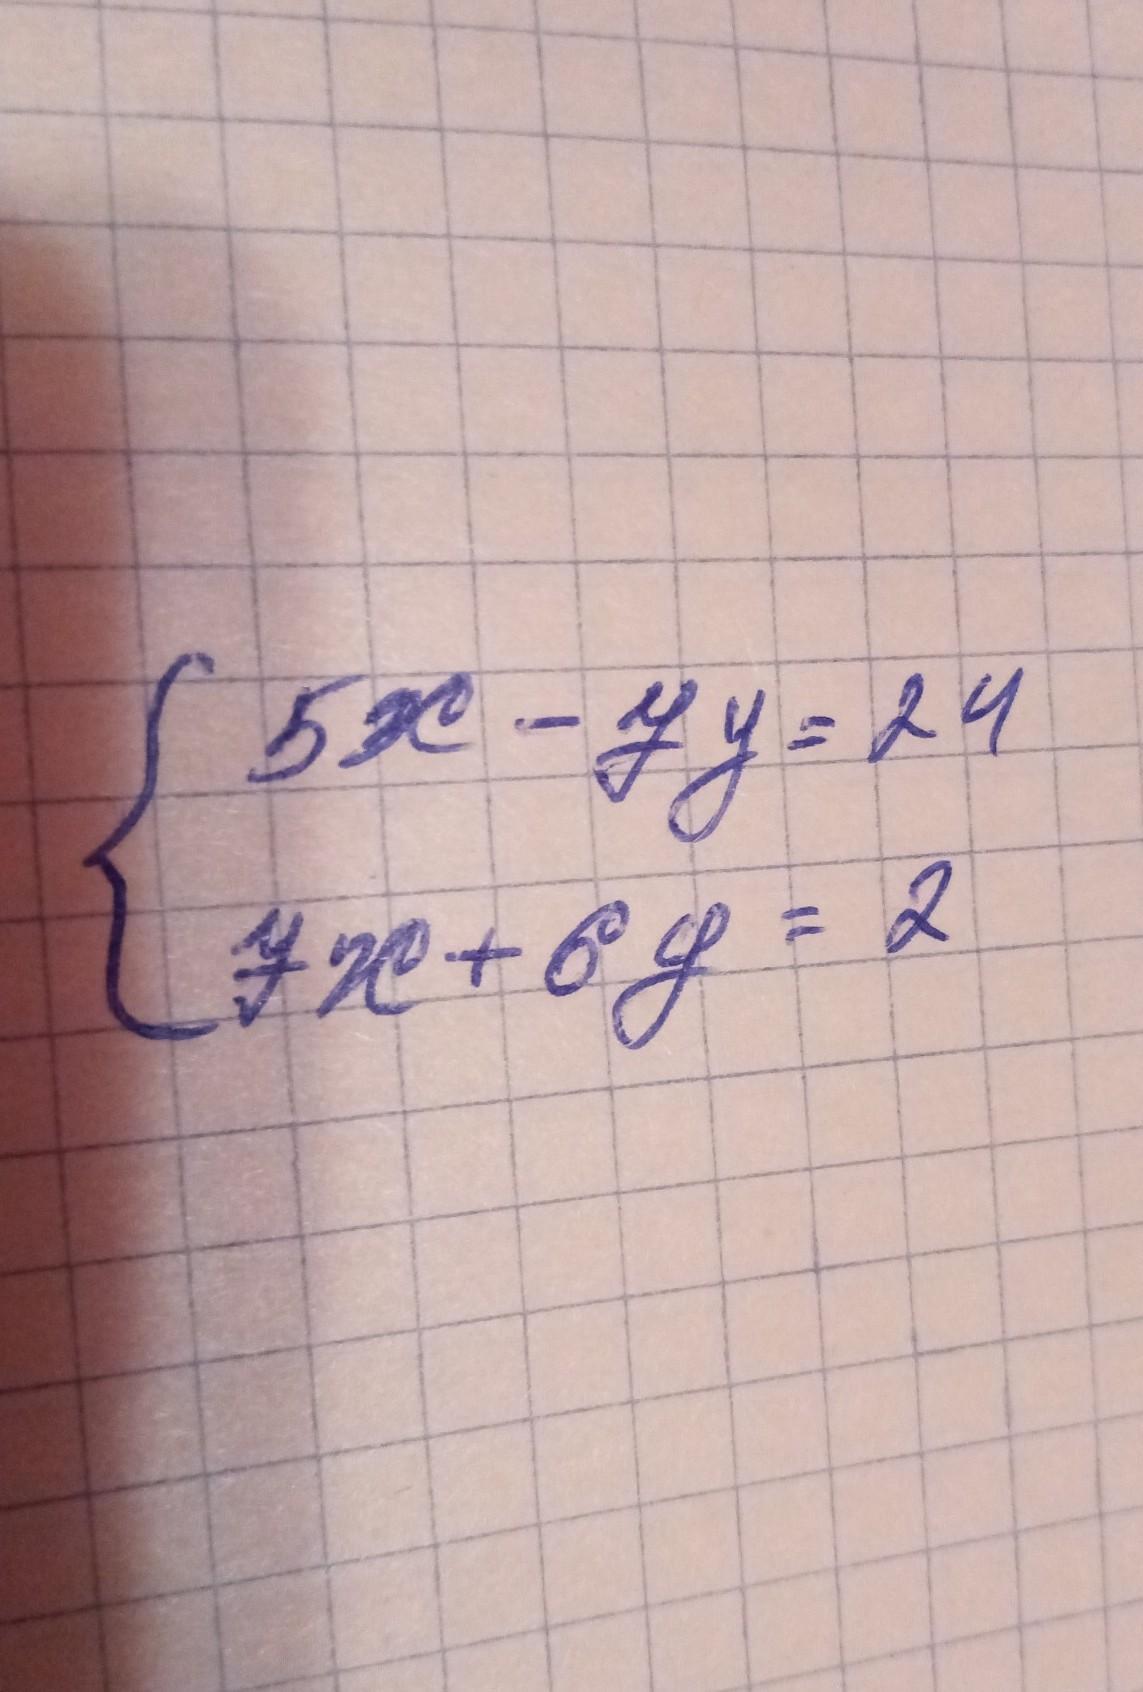 5x - 7y = 24
7x + 6y = 2